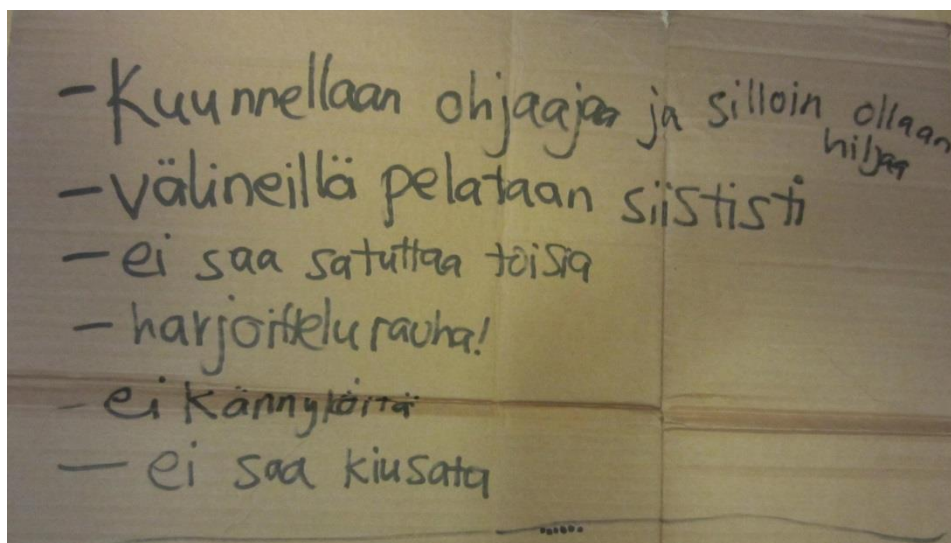 - Kuunnellaan ohjaajaa ja silloin ollaan
hiljaa
- välineillä pelataan siististi
- ei saa satuttaa toisia
- harjoittelurauha!
- ei kännyköitä
- ei saa kiusata